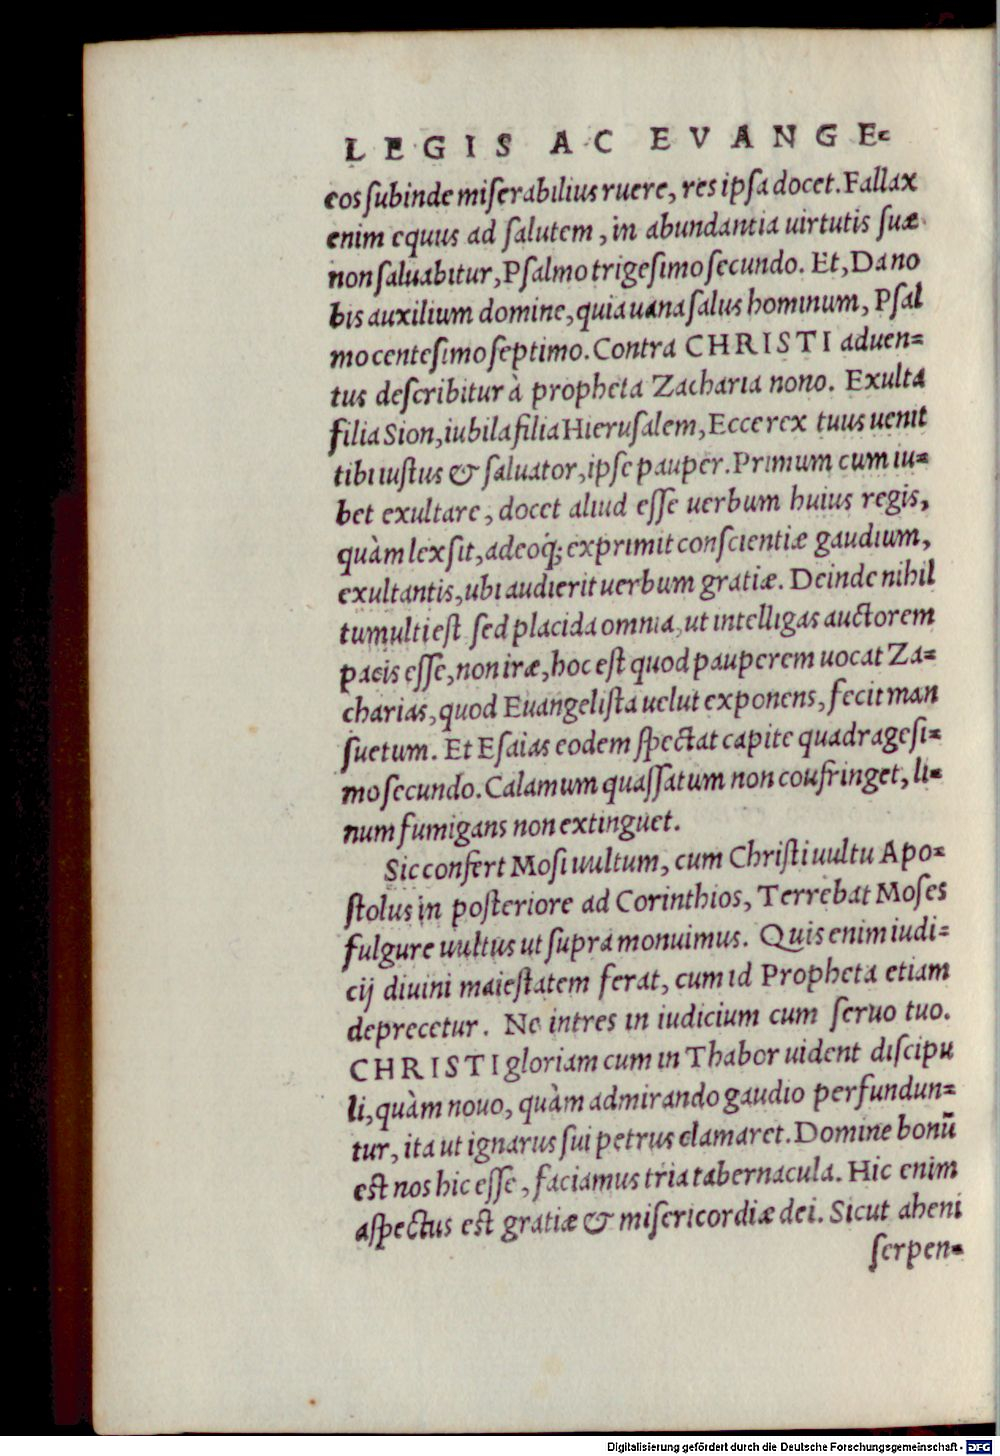 LEGIS AC EVANGE⸗
eos subinde miserabilius ruere, res ipsa docet. Fallax
enim equus ad salutem, in abundantia uirtutis suæ
non saluabitur, Psalmo trigesimo secundo. Et, Da no
bis auxilium domine, quia uana salus hominum, Psal
mo centesimo septimo. Contra CHRISTI aduen⸗
tus describitur à propheta Zacharia nono. Exulta
filia Sion, iubila filia Hierusalem, Ecce rex tuus uenit
tibi iustus & saluator, ipse pauper. Primum cum iu⸗
bet exultare, docet aliud esse uerbum huius regis,
quàm lex sit, adeoq́; exprimit conscientiæ gaudium,
exultantis, ubi audierit uerbum gratiæ. Deinde nihil
tumulti est sed placida omnia, ut intelligas auctorem
pacis esse, non iræ, hoc est quod pauperem uocat Za⸗
charias, quod Euangelista uelut exponens, fecit man
suetum. Et Esaias eodem spectat capite quadragesi⸗
mo secundo. Calamum quassatum non coufringet, li⸗
num fumigans non extinguet.
Sic confert Mosi uultum, cum Christi uultu Apo⸗
stolus in posteriore ad Corinthios, Terrebat Moses
fulgure uultus ut supra monuimus. Quis enim iudi⸗
cij diuini maiestatem ferat, cum id Propheta etiam
deprecetur. Ne intres in iudicium cum seruo tuo.
CHRISTI gloriam cum in Thabor uident discipu
li, quàm nouo, quàm admirando gaudio perfundun⸗
tur, ita ut ignarus sui petrus clamaret. Domine bonũ
est nos hic esse, faciamus tria tabernacula. Hic enim
aspectus est gratiæ & misericordiæ dei. Sicut aheni
serpen⸗
Digitalisierung gefördert durch die Deutsche Forschungsgemeinschaft - DFG